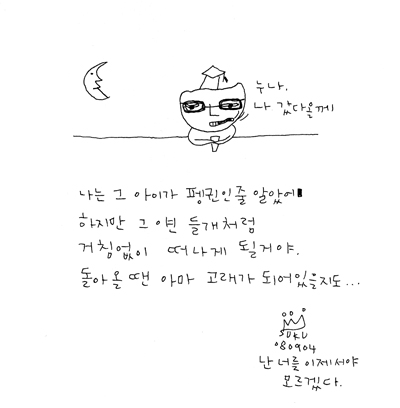 누나.
나 갔다올께
나는 그 아이가 펭귄인줄 알았어
하지만 그 앤 들개처럼
거침없이 떠나게 될거야.
돌아올 땐 아마 고래가 되어있을지도...
SUKU
080904
난 너를 이제서야
모르겠다.